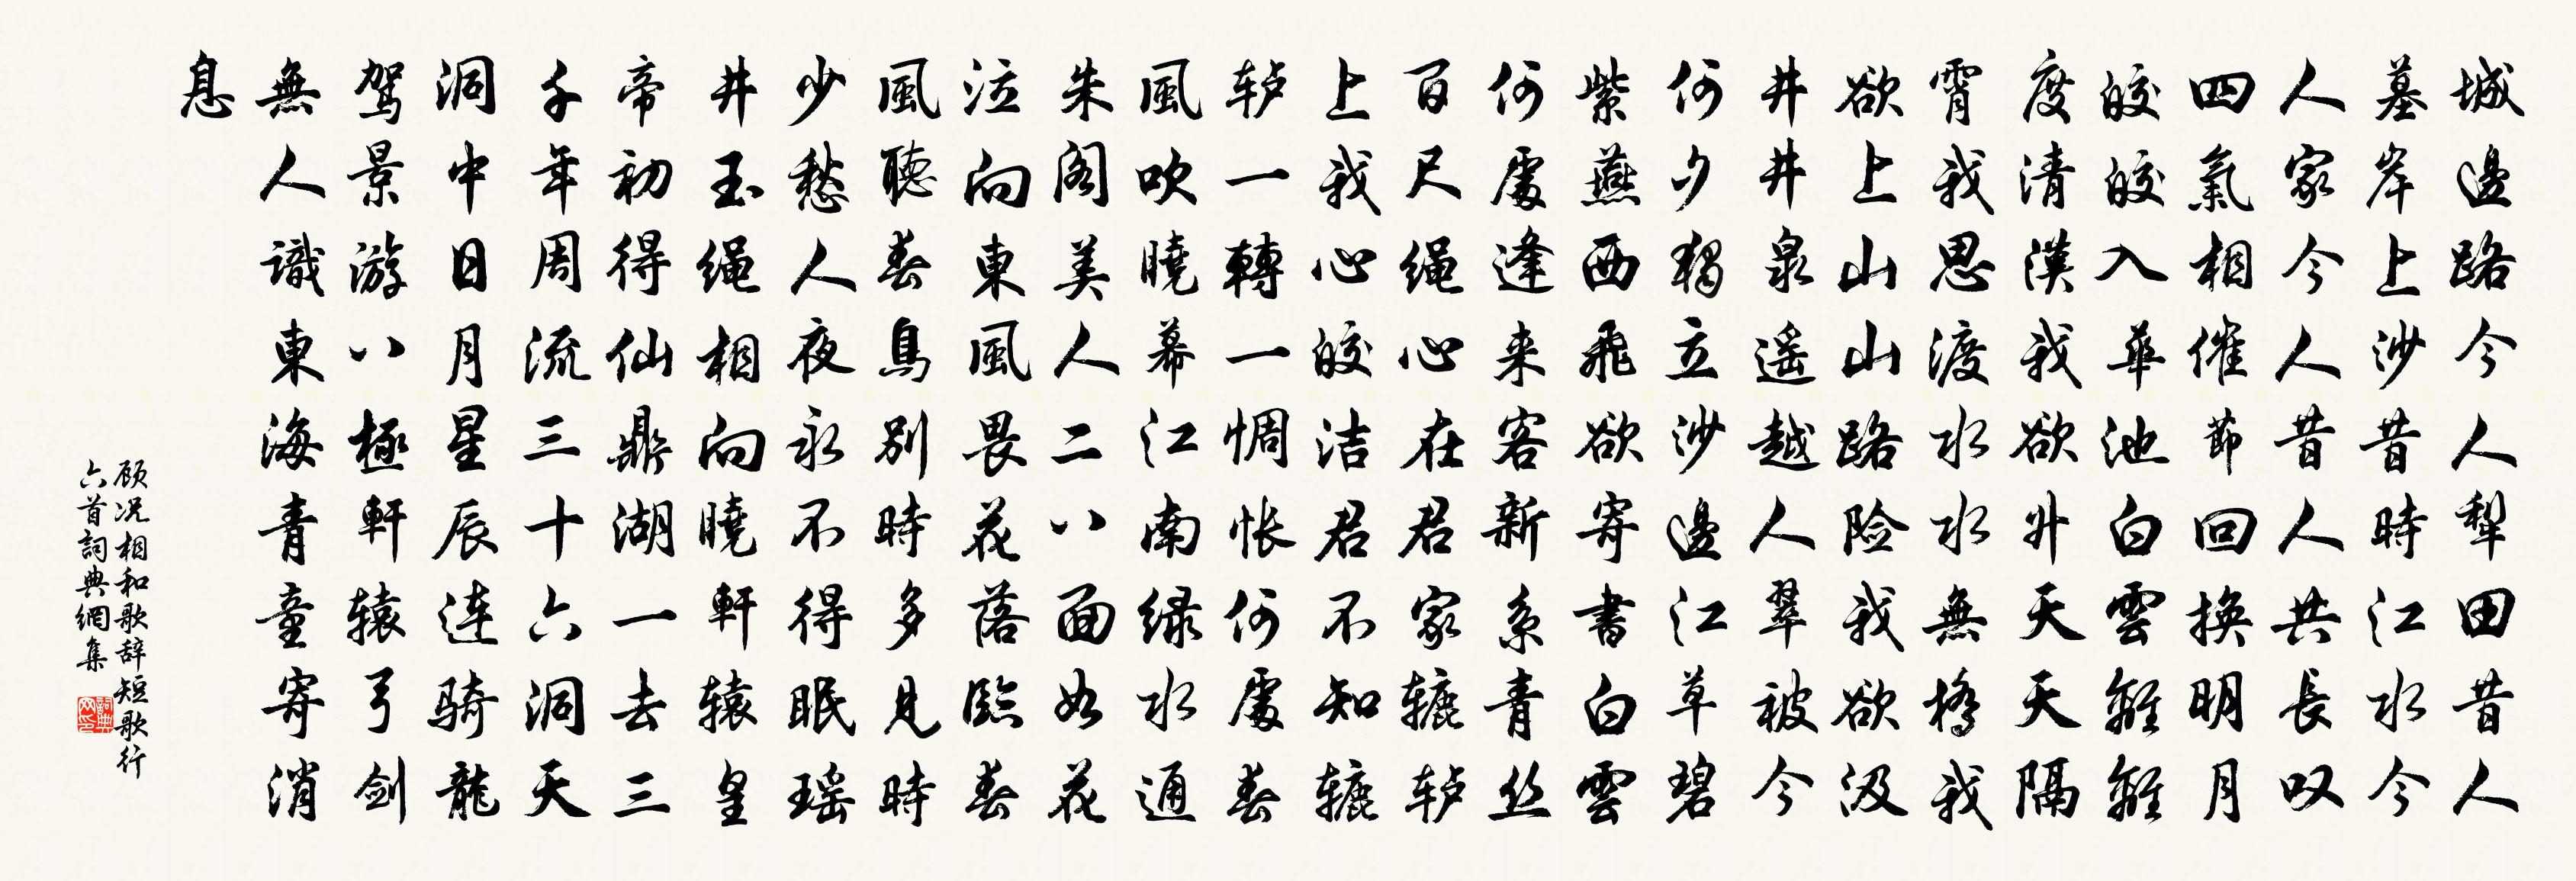 城邊路今人犁田昔人
墓岸上沙昔時江水今
人家今人昔人共長叹
四氣相催節回換明月
皎皎入華池白雲離離
度清漢我欲升天天隔
霄我思渡水水無橋我
欲上山山路险我欲汲
井井泉遥越人翠被今
何夕獨立沙邊江草碧
紫燕西飛欲寄書白雲
何處逢来客新系青丝
百尺绳心在君家辘轳
上我心皎洁君不知辘
轳一轉一惆怅何處春
風吹曉幕江南绿水通
朱阁美人二八面如花
泣向東風畏花落臨春
風聽春鳥别時多見時
少愁人夜永不得眠瑶
井玉绳相向曉軒辕皇
帝初得仙鼎湖一去三
千年周流三十六洞天
洞中日月星辰连骑龍
驾景游八極軒辕弓剑
無人識東海青童寄消
息
顾况相和歌辞短歌行
六首詞典網集
詞典
网印